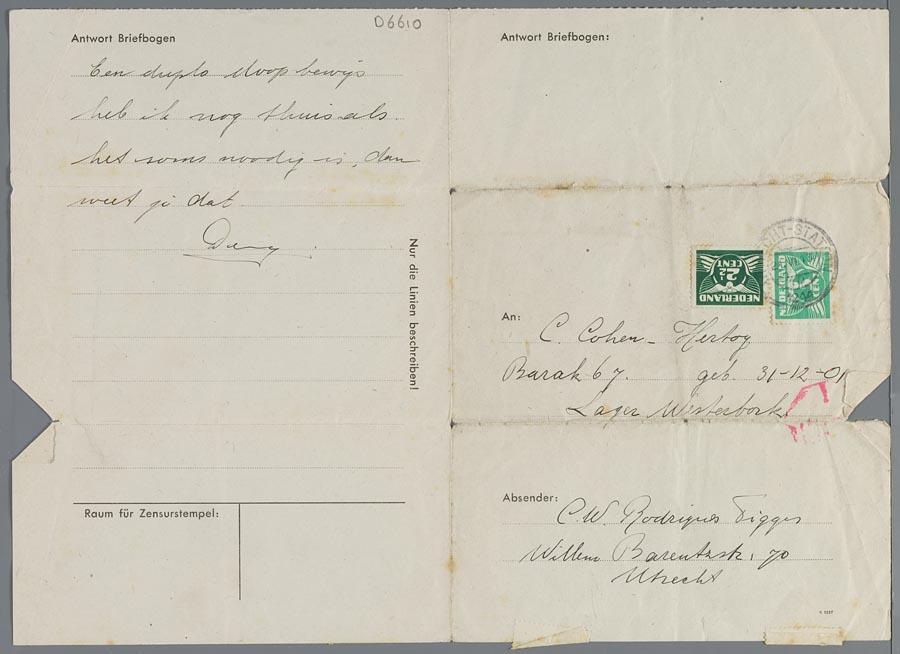 D6610
Antwort Briefbogen
Een duplo doop bewijs
heb ik nog thuis als
het soms noodig is, dan
weet je dat
Nur die Linien beschreiben!
Raum für Zensurstempel:
Antwort Briefbogen:
NEDERLAND
2½
CENT
NEDERLAND
CENT
An:
C. Cohen - Hertog
Barak 67. geb. 31-12-01
Lager Westerbork
Absender:
C.W. Rodrigues
Willem Barentzstr. 70
Utrecht